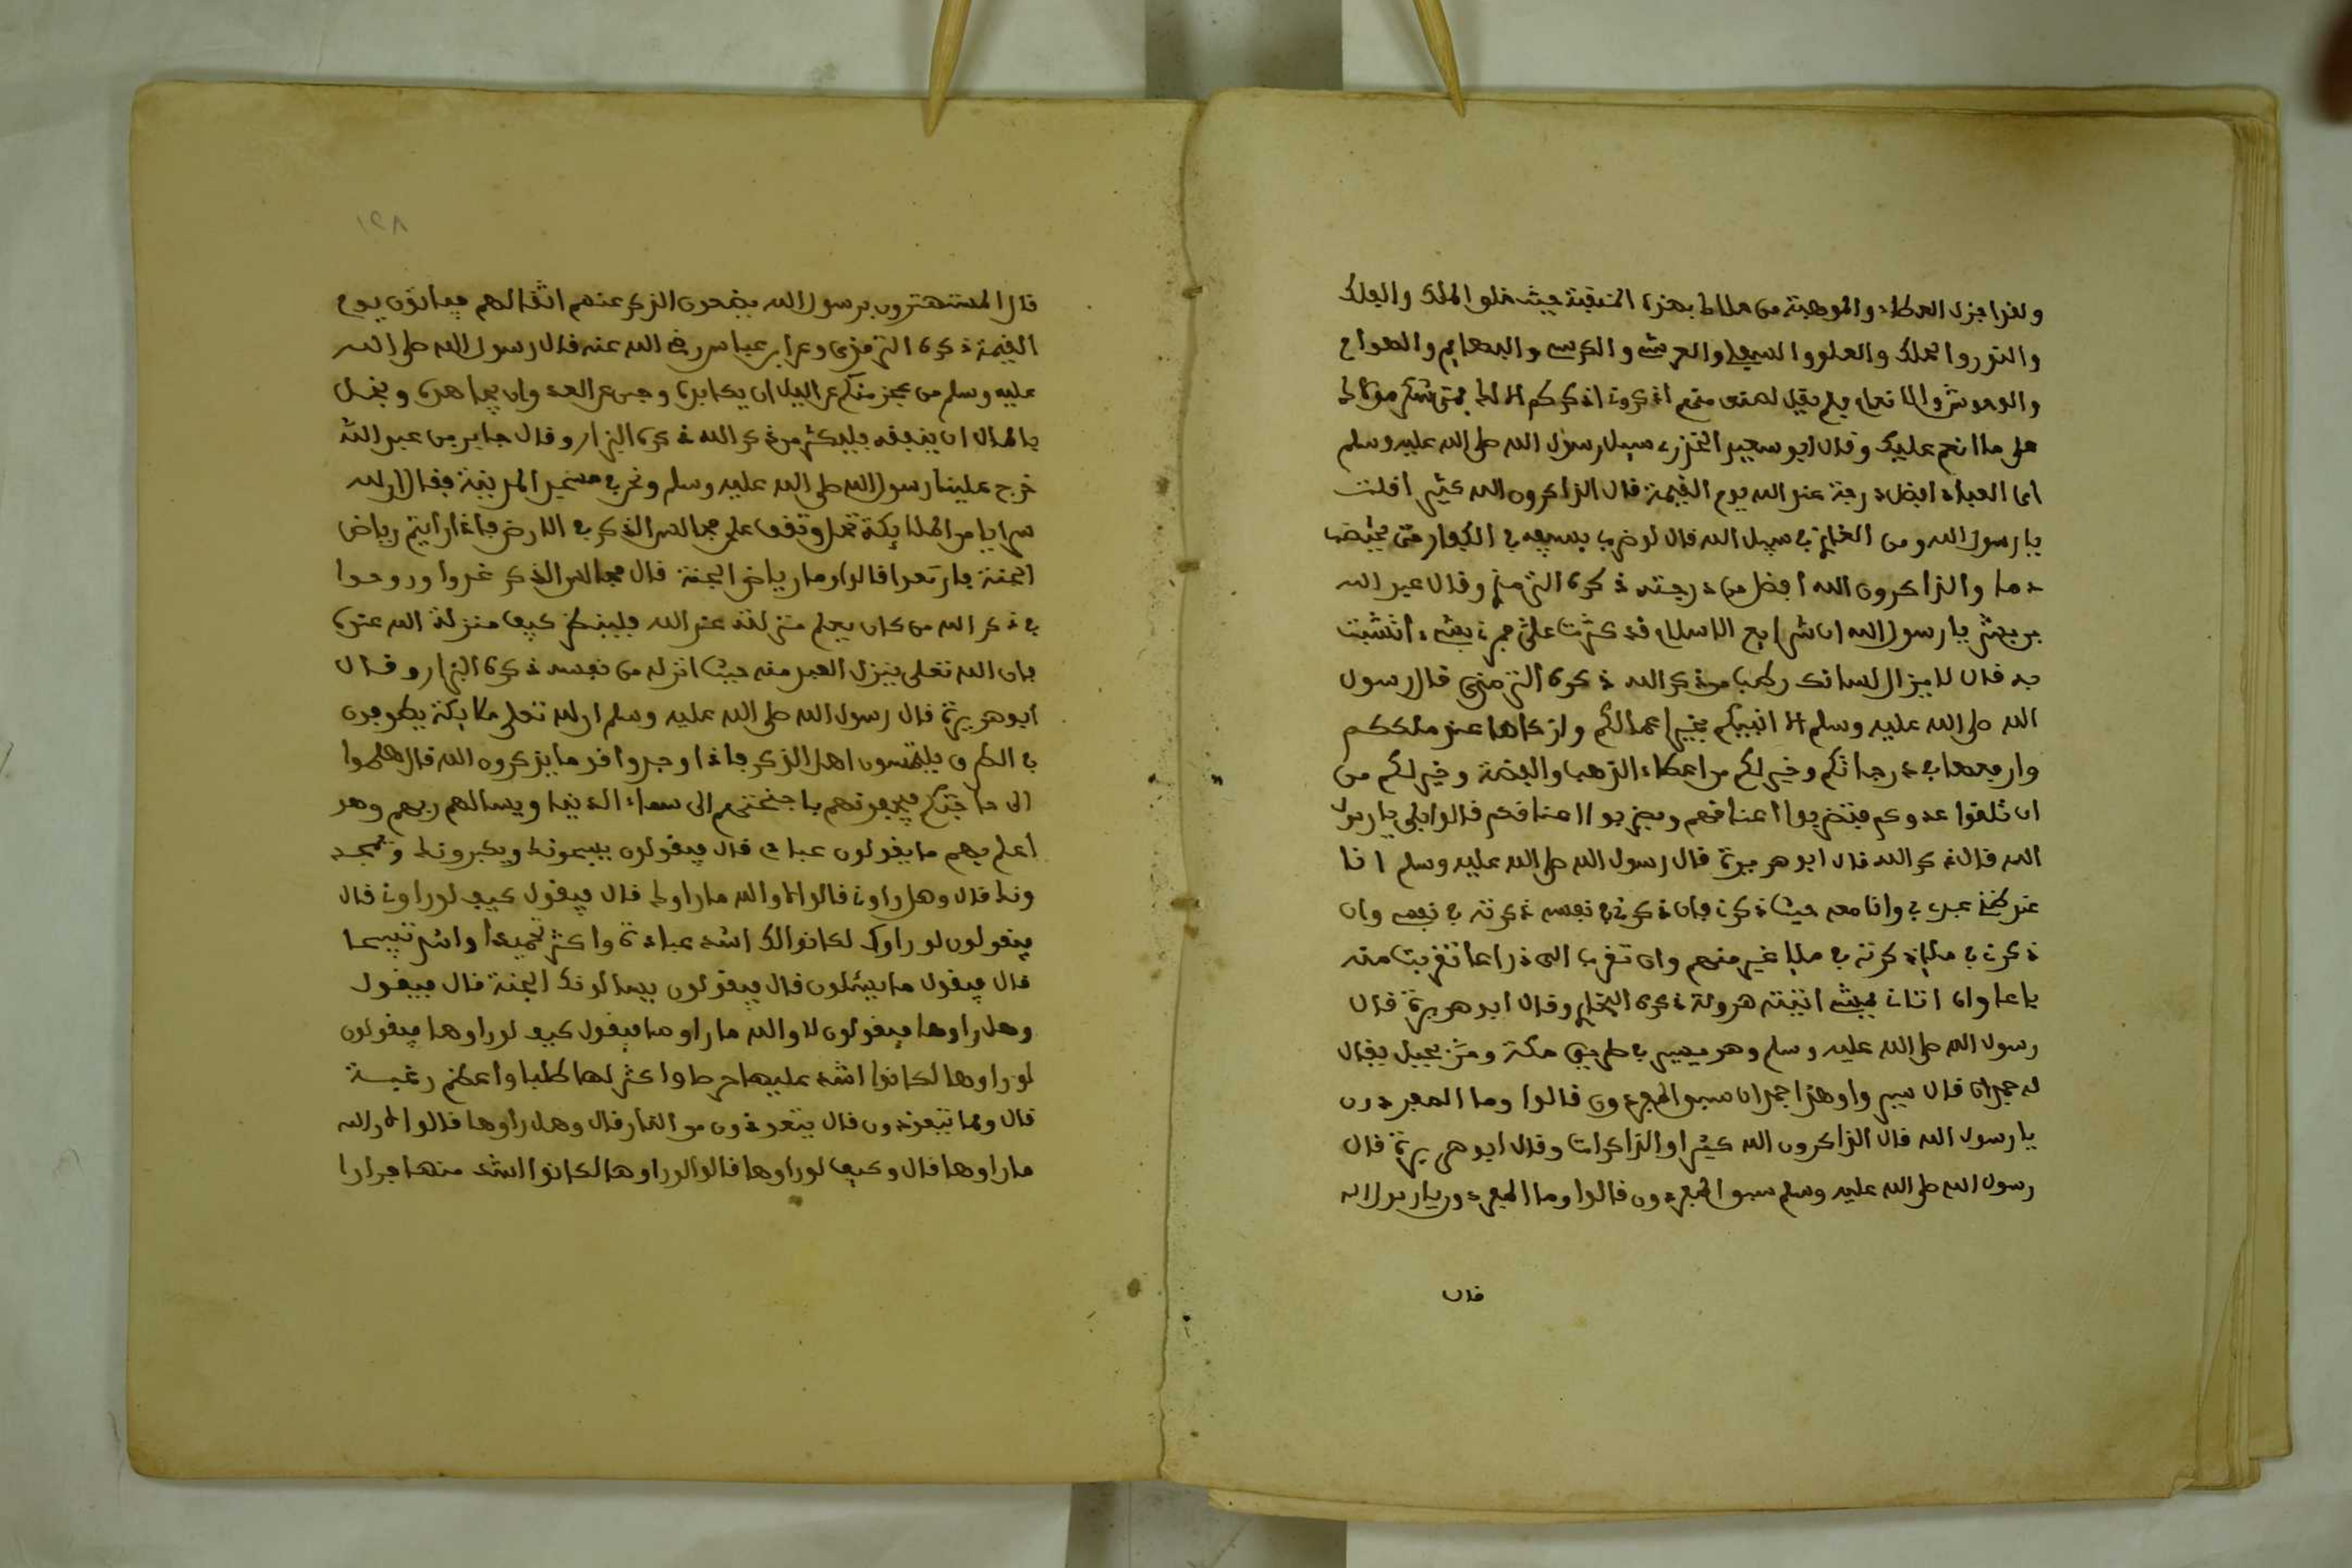 ولقد اجزل العطاء والموهبة من هذه المنقبة حيث خلق الملك والفلك
والنور والحلك والعلو والسفل والعرش والكرسي والبهائم والهوام
والوحوش والانعام ولم يقل لصنف منهم اذكروني اذكركم
على ما انعم عليك وقال ابو سعيد الخدري سيل رسول الله صلى الله عليه وسلم
اى العباد افضل درجة عند الله يوم القيمة قال الذاكرون الله كثيرا قلت
يا رسول الله ومن الغازي في سبيل الله قال لو ضرب بسيفه في الكفار حتى يختضب
دما والذاكرون الله افضل من درجته ذكره الترمذي وقال عبد الله
بن بشر يا رسول الله ان شرايع الاسلام قد كثرت علي فمرني بشيء اتشبث
به قال لا يزال لسانك رطبا من ذكر الله ذكره الترمذي قال رسول
الله صلى الله عليه وسلم الا انبيكم بخير اعمالكم وازكاها عند مليككم
وارفعها في درجاتكم وخير لكم من اعطاء الذهب والفضة وخير لكم من
ان تلقوا عدوكم فتضربوا اعناقهم ويضربوا اعناقكم قالوا بلى يا رسول
الله قال ذكر الله قال ابو هريرة قال رسول الله صلى الله عليه وسلم انا
عند ظن عبدي بي وانا معه حيث ذكرني فان ذكرني في نفسه ذكرته في نفسي وان
ذكرني في ملإ ذكرته في ملإ خير منهم وان تقرب الى ذراعا تقربت منه
باعا وان اتاني يمشي اتيته هرولة ذكره البخاري وقال ابو هريرة قال
رسول الله صلى الله عليه وسلم وهو يسير في طريق مكة ومر بجبل يقال
له جمدان قال سيروا هذا جمدان سبق المفردون قالوا وما المفردون
يا رسول الله قال الذاكرون الله كثيرا والذاكرات وقال ابو هريرة قال
رسول الله صلى الله عليه وسلم سبق المفردون قالوا وما المفردون يا رسول الله
قال
١٢٨
قال المستهترون برسول الله يضع الذكر عنهم اثقالهم فياتون يوم
القيمة ذكره الترمذي وعن ابن عباس رضي الله عنه قال رسول الله صلى الله
عليه وسلم من عجز منكم عن اليل ان يكابده وجبن عن العدو ان يجاهده وبخل
بالمال ان ينفقه فليكثر من ذكر الله ذكره البزار وقال جابر بن عبد الله
خرج علينا رسول الله صلى الله عليه وسلم ونحن في مسجد المدينة فقال ان لله
سرايا من الملايكة تحل وتقف على مجالس الذكر في الارض فاذا رأيتم رياض
الجنة فارتعوا قالوا وما رياض الجنة قال مجالس الذكر غدوا وروحوا
في ذكر الله من كان يعلم منزلته عند الله فلينظر كيف منزلة الله عنده
فان الله تعلى ينزل العبد منه حيث انزله من نفسه ذكره البزار وقال
ابو هريرة قال رسول الله صلى الله عليه وسلم ان لله تعلى ملايكة يطوفون
في الطرق يلتمسون اهل الذكر فاذا وجدوا قوما يذكرون الله قال هلموا
الى حاجتكم فيحفونهم باجنحتهم الى سماء الدنيا ويسالهم ربهم وهو
اعلم بهم ما يقولون عبادي قال فيقولون يسبحونك ويكبرونك ويمجد
ونك قال وهل راوني قالوا لا والله ما راوك قال فيقول كيف لو راوني قال
يقولون لو راوك لكانوا لك اشد عبادة واكثر تحميدا واشد تسبيحا
قال فيقول ما يسئلون قال فيقولون يسالونك الجنة قال فيقول
وهل راوها فيقولون لا والله ما راوها فيقول كيف لو راوها فيقولون
لو راوها لكانوا اشد عليها حرصا واكثر لها طلبا واعظم رغبة
قال ومما يتعوذون قال يتعوذون من النار قال وهل راوها قالوا لا والله
ما راوها قال وكيف لو راوها قالوا لو راوها لكانوا اشد منها فرارا